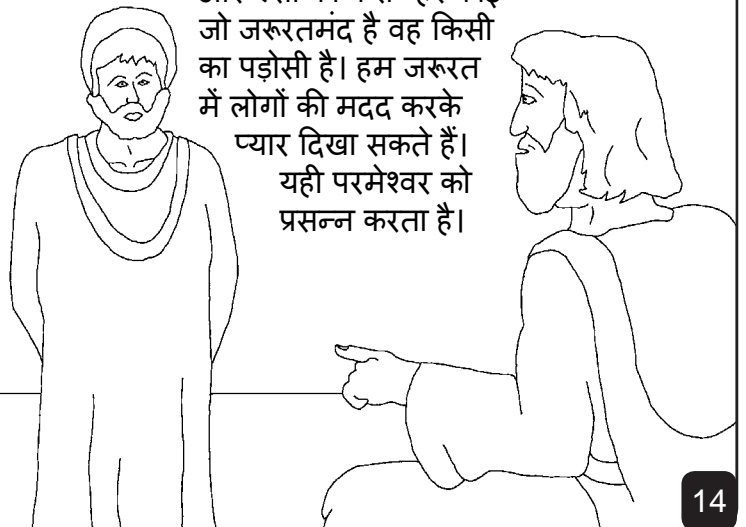 जो जरूरतमंद है वह किसी
का पड़ोसी है। हम जरूरत
में लोगों की मदद करके
प्यार दिखा सकते हैं।
यही परमेश्वर को
प्रसन्न करता है।
14